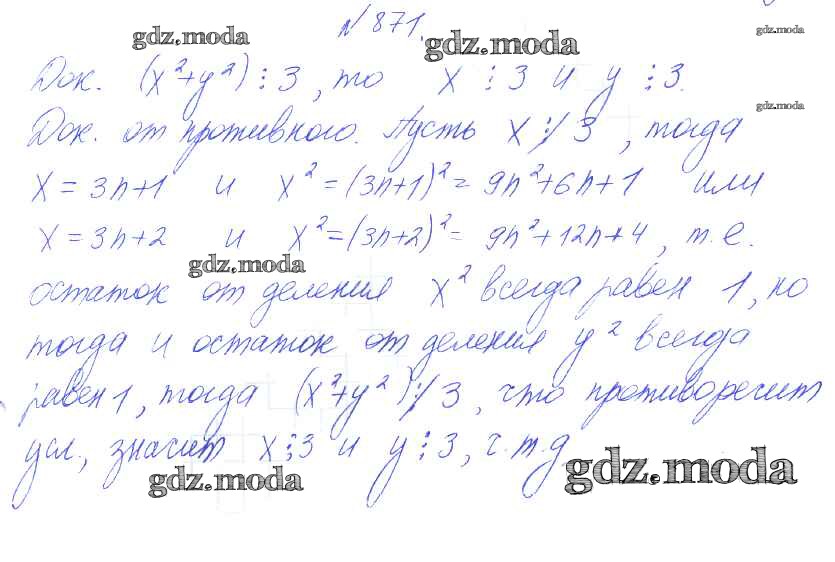 №871.
gdz.moda
gdz.moda
gdz.moda
Док. (x²+y²)⋮3, то x⋮3 и y⋮3.
gdz.moda
Док. от противного. Пусть x⋮̸3, тогда
x=3n+1 и x²=(3n+1)²=9n²+6n+1 или
x=3n+2 и x²=(3n+2)²=9n²+12n+4, т.е.
gdz.moda
остаток от деления x² всегда равен 1, но
тогда и остаток от деления y² всегда
равен 1, тогда (x²+y²)⋮̸3, что противоречит
усл., значит x⋮3 и y⋮3, ч.т.д
gdz.moda
gdz.moda